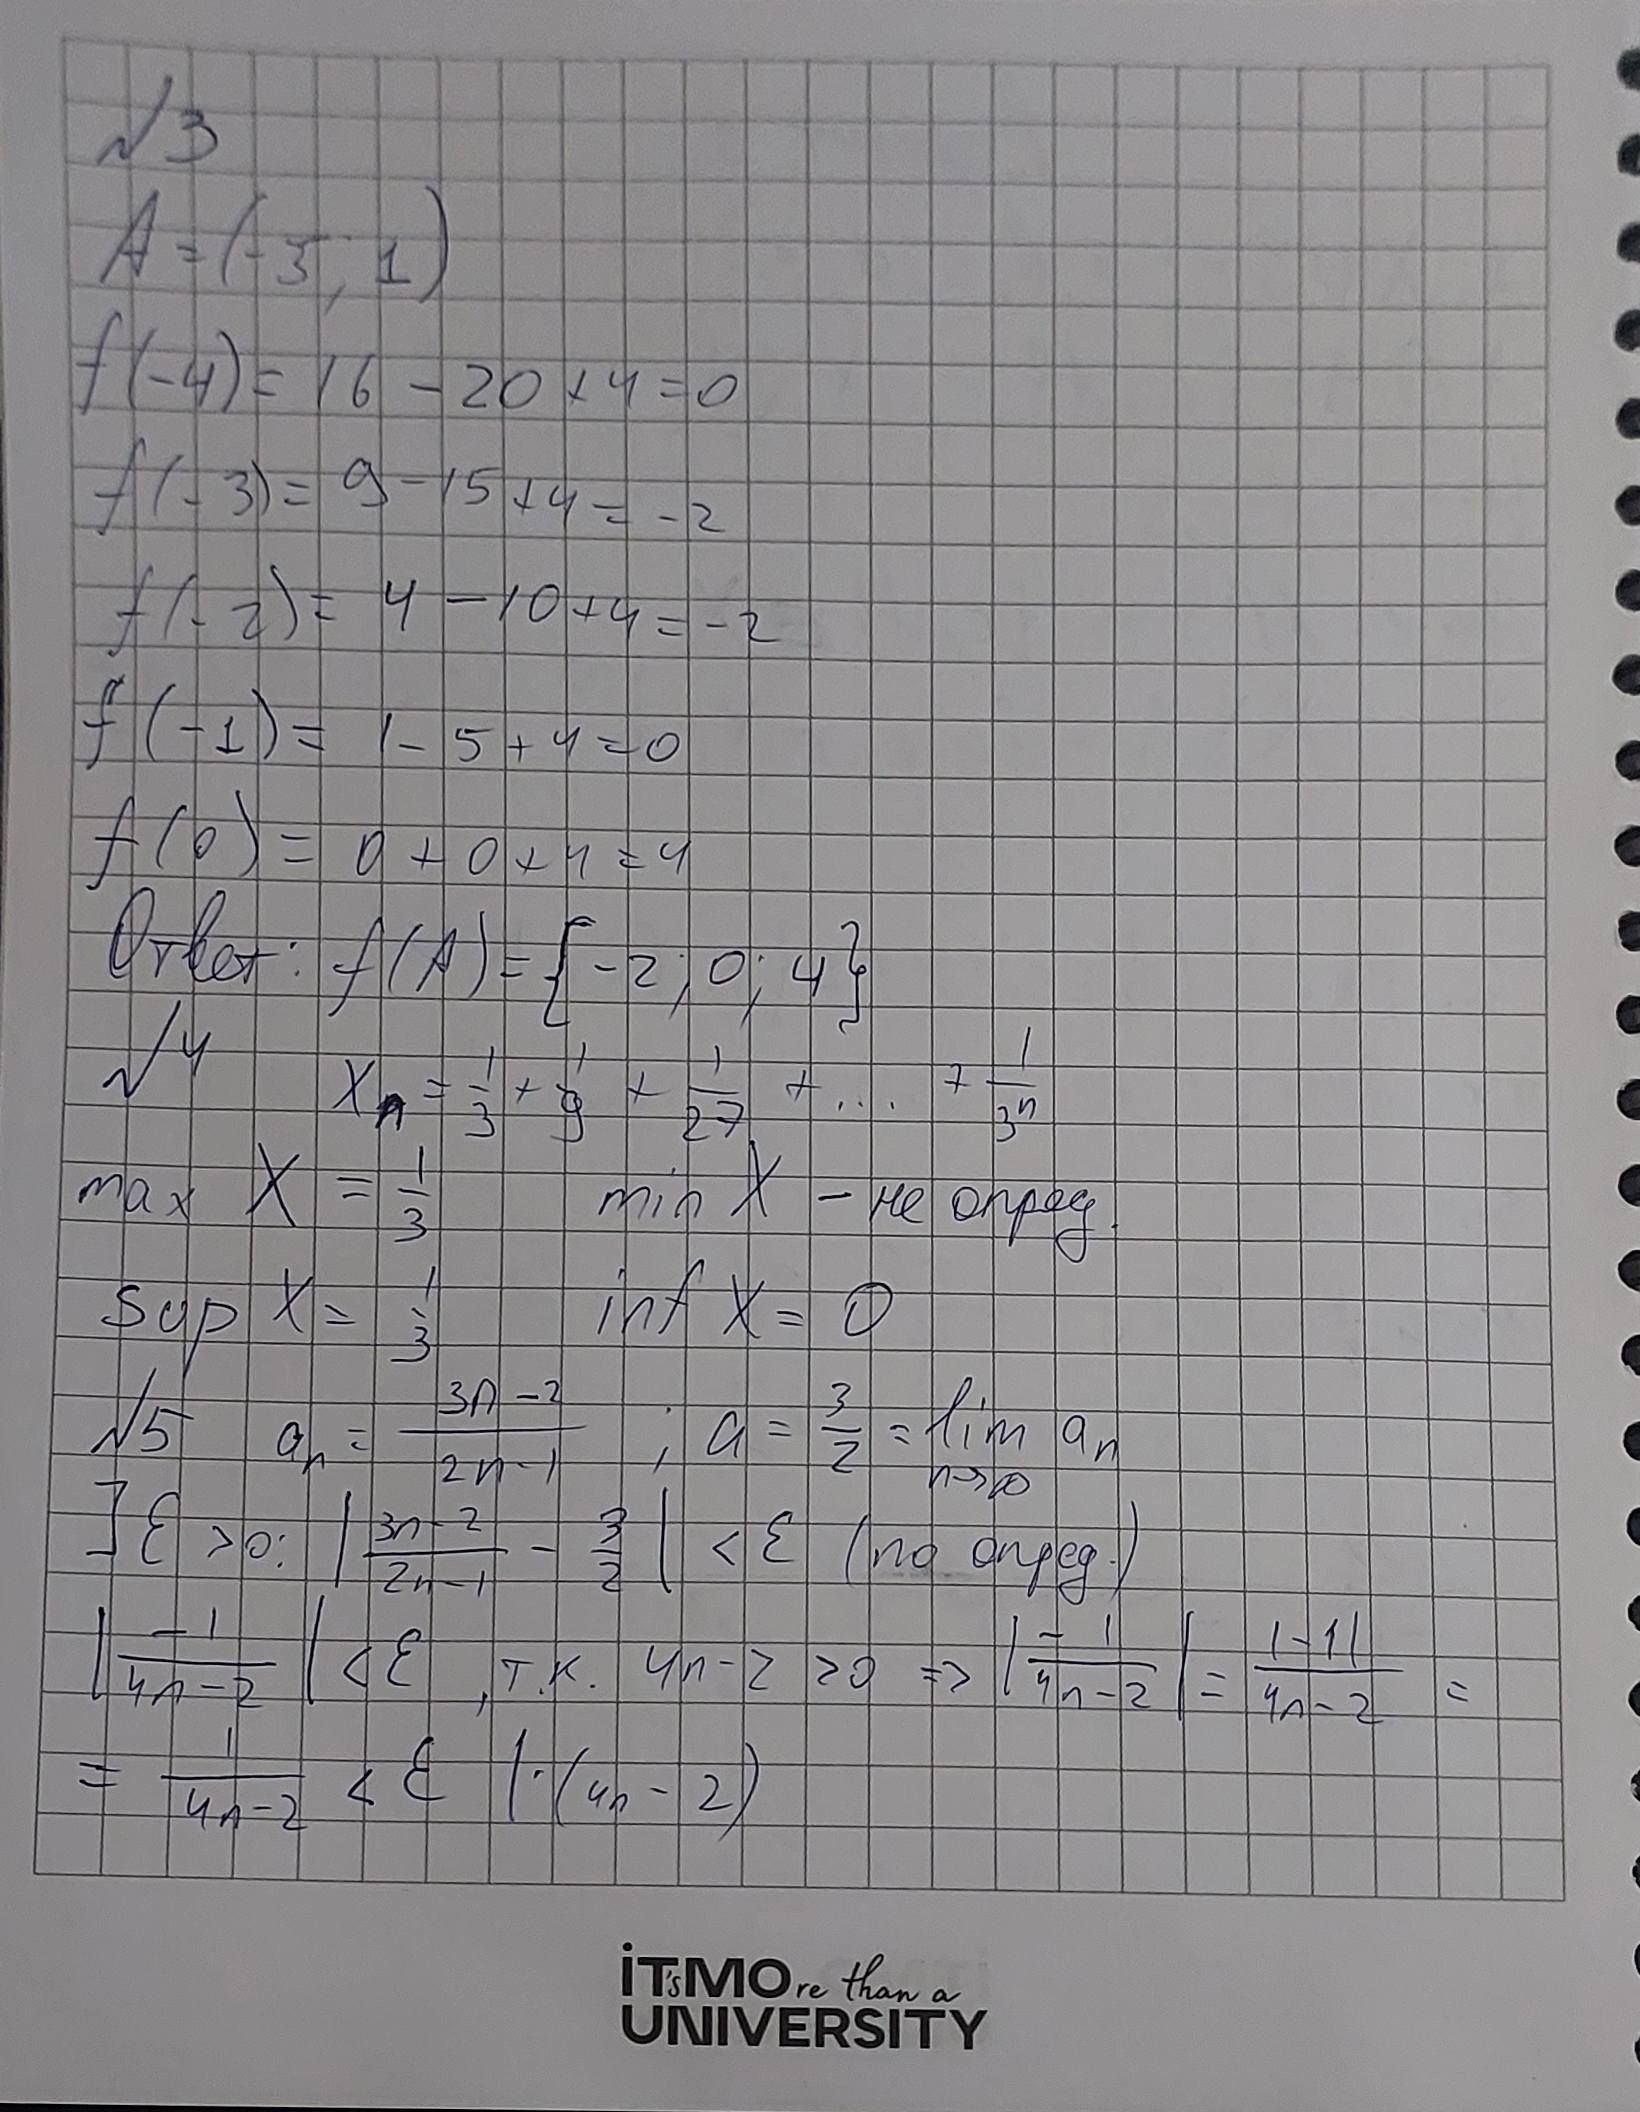 №3
A = (-5; 1)
f(-4) = 16 - 20 + 4 = 0
f(-3) = 9 - 15 + 4 = -2
f(-2) = 4 - 10 + 4 = -2
f(-1) = 1 - 5 + 4 = 0
f(0) = 0 + 0 + 4 = 4
Ответ: f(A) = {-2; 0; 4}
№4 Xₙ = 1/3 + 1/9 + 1/27 + .... + 1/3ⁿ
max X = 1/3 min X - не опред.
Sup X = 1/3 inf X = 0
№5 aₙ = (3n-2)/(2n-1) ; a = 3/2 = lim n→∞ aₙ
] ℰ > 0: |(3n-2)/(2n-1) - 3/2| < ℰ (по опред.)
|-1/(4n-2)| < ℰ, т.к. 4n-2 > 0 => |-1/(4n-2)| = |-1|/(4n-2) =
= 1/(4n-2) < ℰ | · (4n-2)
iT'sMOre than a
UNIVERSITY